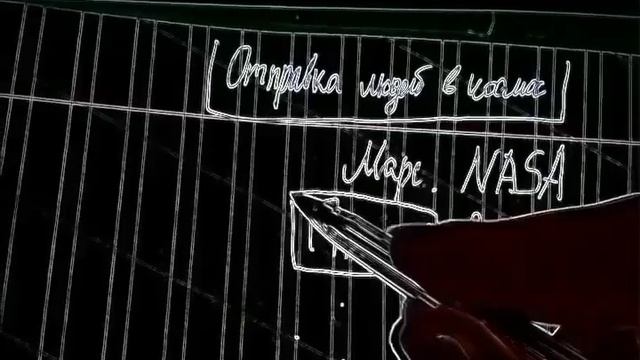 Отправка людей в космос
Марс. NASA